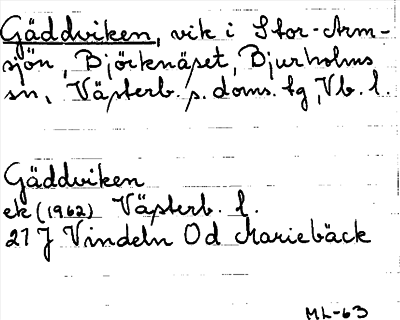 Gäddviken, vik i Stor-Arm-
sjön, Björknäset, Bjurholms
sn, Västerb. s. doms. tg, Vb. l.
Gäddviken
ek (1962) Västerb. l.
21 J Vindeln Od Mariebäck
ML-63